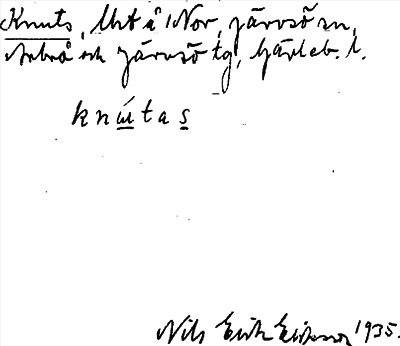 Knuts, Uht å Nor, Järvsö sn,
Arbrå och Järvsö tg, Gävleb. l.
knútas
Nils Erik Eriksson 1935.